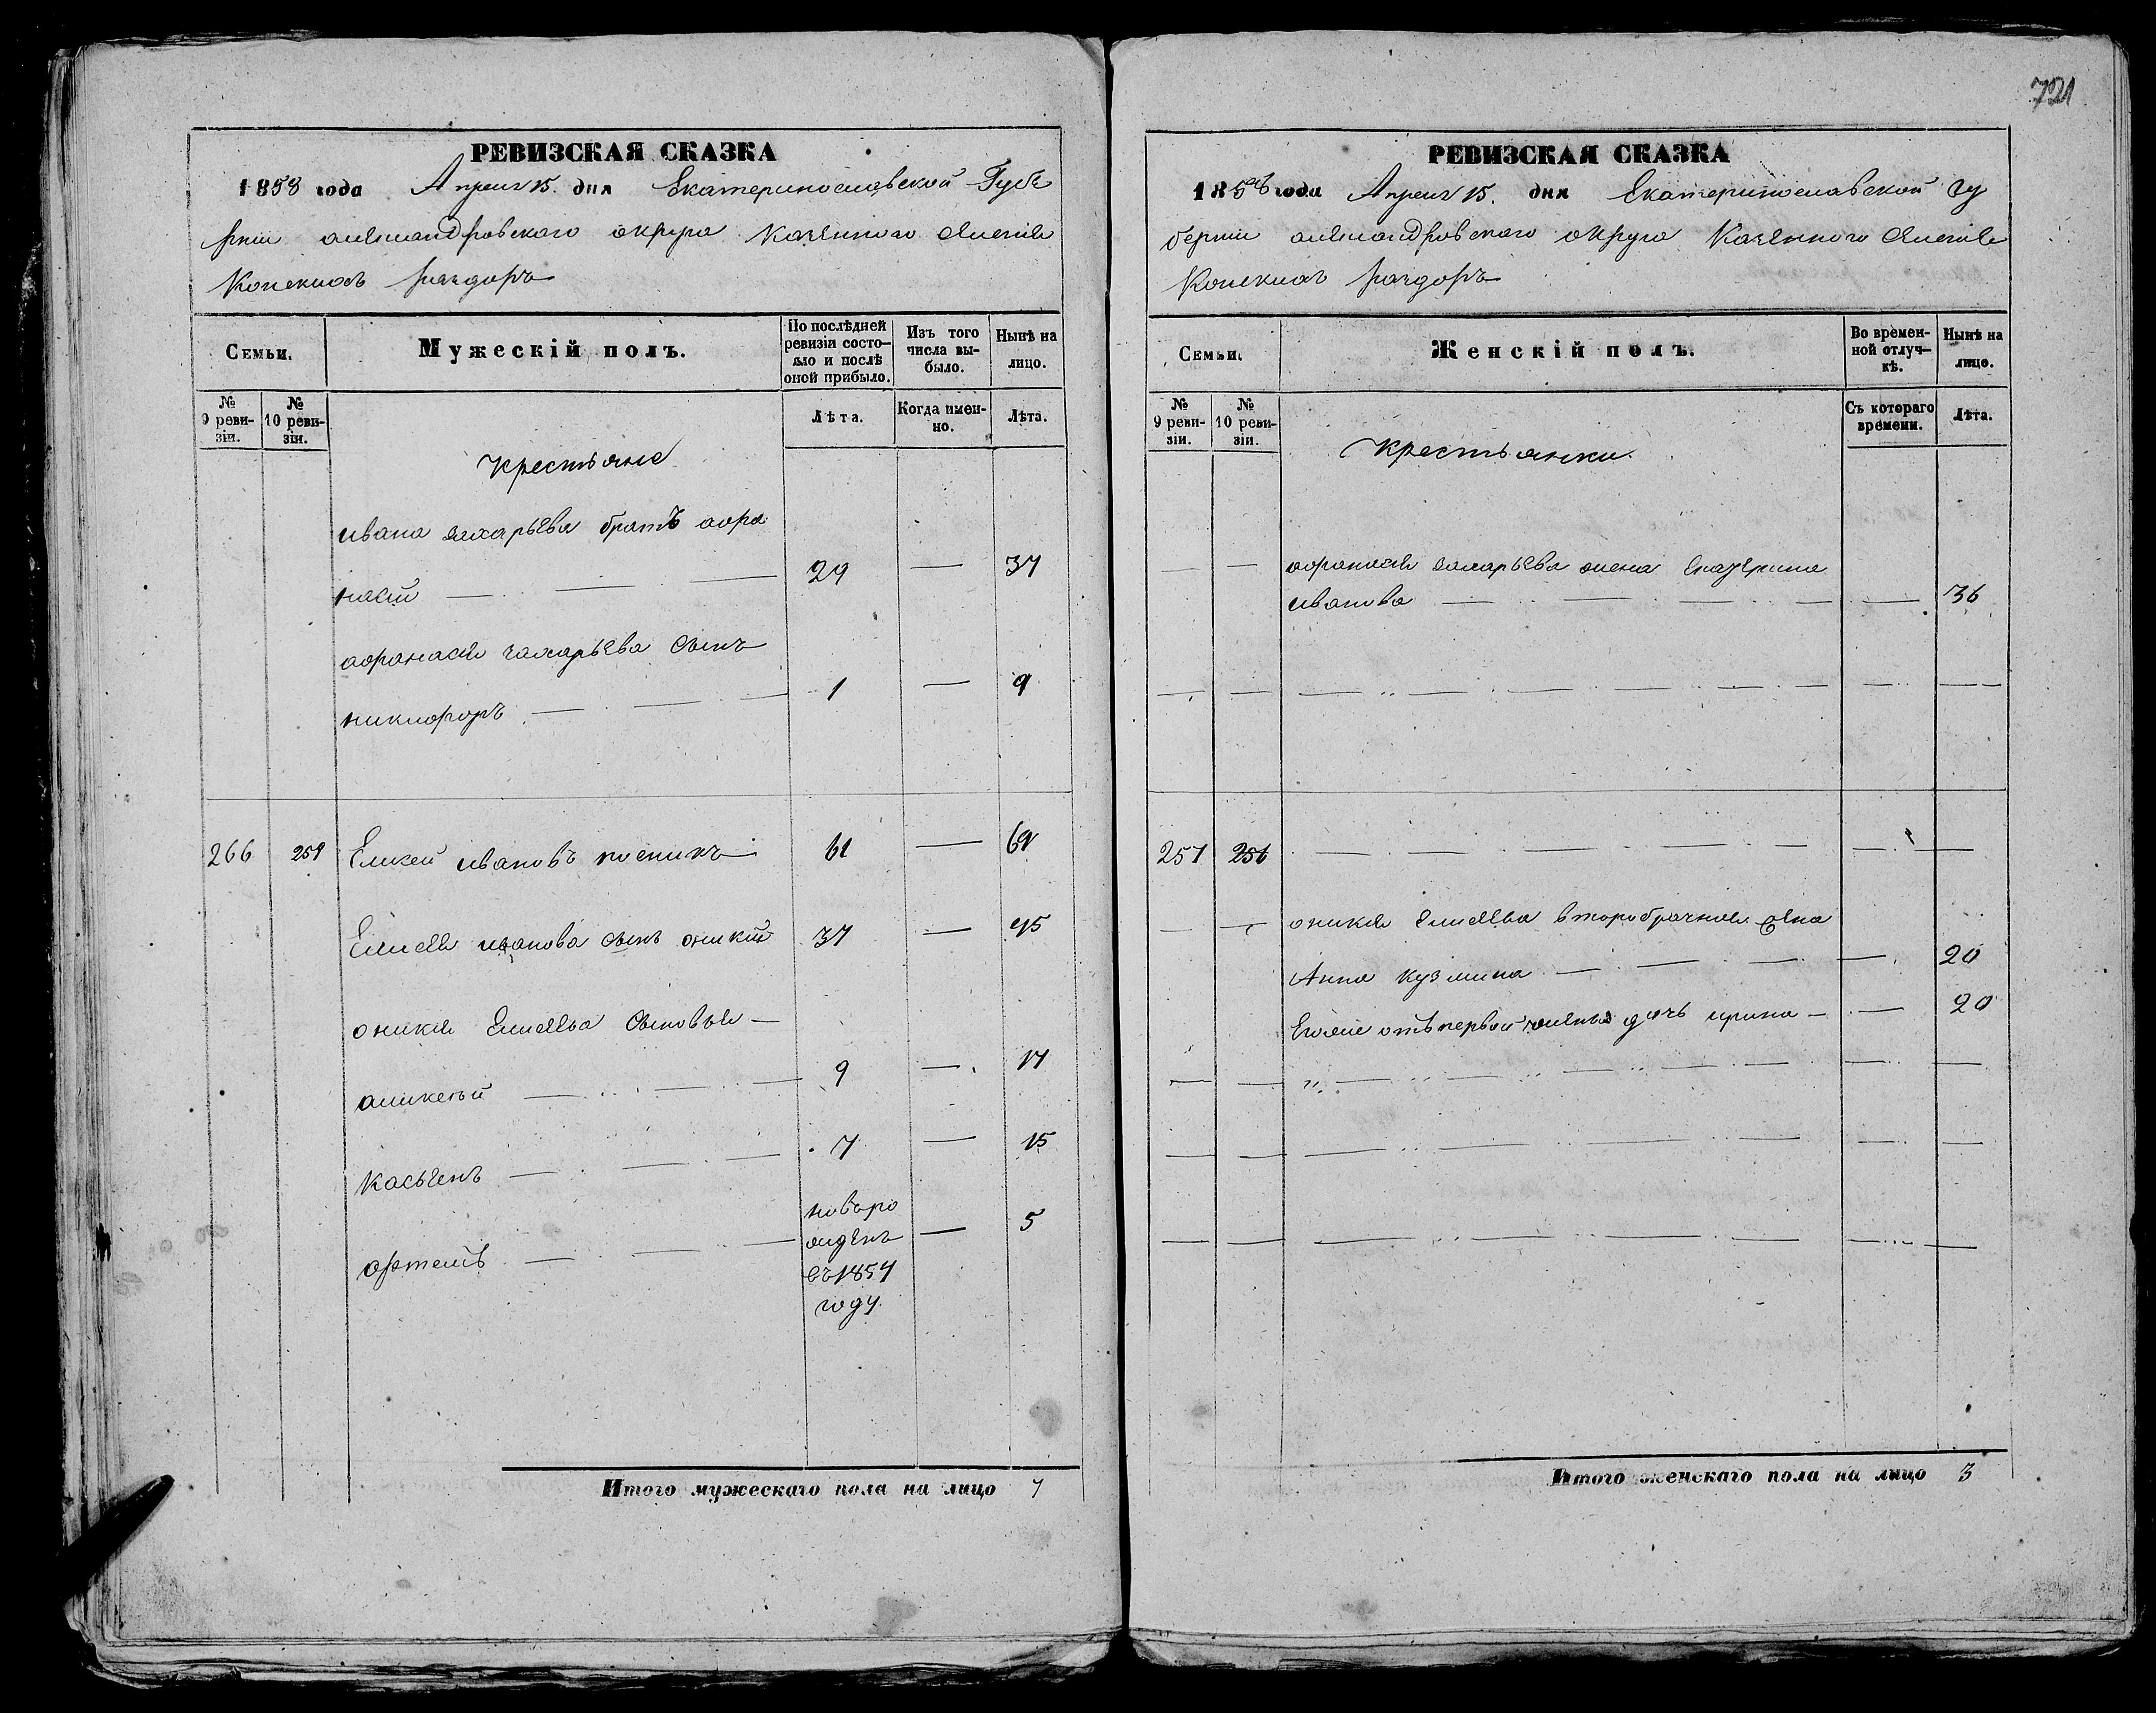 721
РЕВИЗСКАЯ СКАЗКА
1858 года Апреля 15. дня Екатеринославской Губе
рнии александровского округа казенного селения
Конскихъ раздоръ
Семьи. Мужескій полъ. По послѣдней ревизіи состояло и послѣ оной прибыло. Изъ того числа выбыло. Нынѣ на лицо.
№ 9 ревизіи. № 10 ревизіи. Лѣта. Когда именно. Лѣта.
Крестьяне
ивана захарьева братъ афа
насий — 29 — 37
афанасия захарьева сынъ
никифоръ — 1 — 9
266 259 Елисей ивановъ 61 — 69
Елисея иванова сынъ оникий 37 — 45
оникия Елисеева сыновья —
аликсей — 9 — 17
Касьенъ — 7 — 15
артемъ — новоро
жденъ — 5
въ 1854
году
Итого мужескаго пола на лицо 7
РЕВИЗСКАЯ СКАЗКА
1858 года Апреля 15. дня Екатеринославской гу
бернии александровского округа Казенного селения
Конскихъ раздоръ
Семьи. Женскій полъ. Во временной отлучкѣ. Нынѣ на лицо.
№ 9 ревизіи. № 10 ревизіи. Съ котораго времени. Лѣта.
Крестьянки.
— — афанасия захарьева жена Екатерина
иванова — — 36
257 251
— — оникия Елисеева второбрачная жена
Анна кузмина — — 20
Егоже отъ первой жены дочь ирина — — 20
Итого женскаго пола на лицо 3